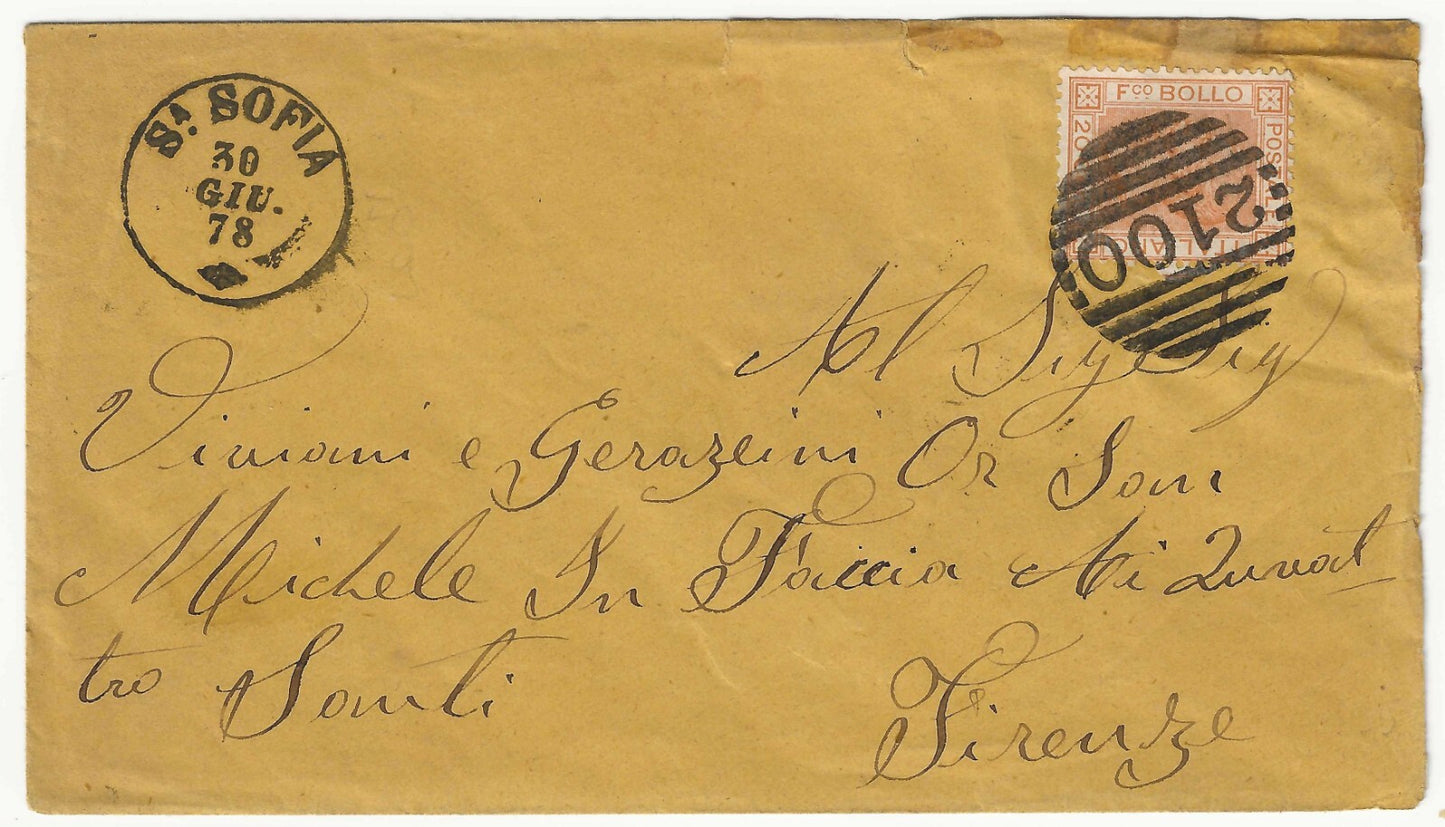 Sᴬ. SOFIA
30
GIU.
78
Fᶜᴼ BOLLO
POSTALE
ITALIANO
20
2100
Al Sig Sig
Viviani e Gerazzini Or San
Michele In Faccia Ai Quuat
tro Santi
Firenze